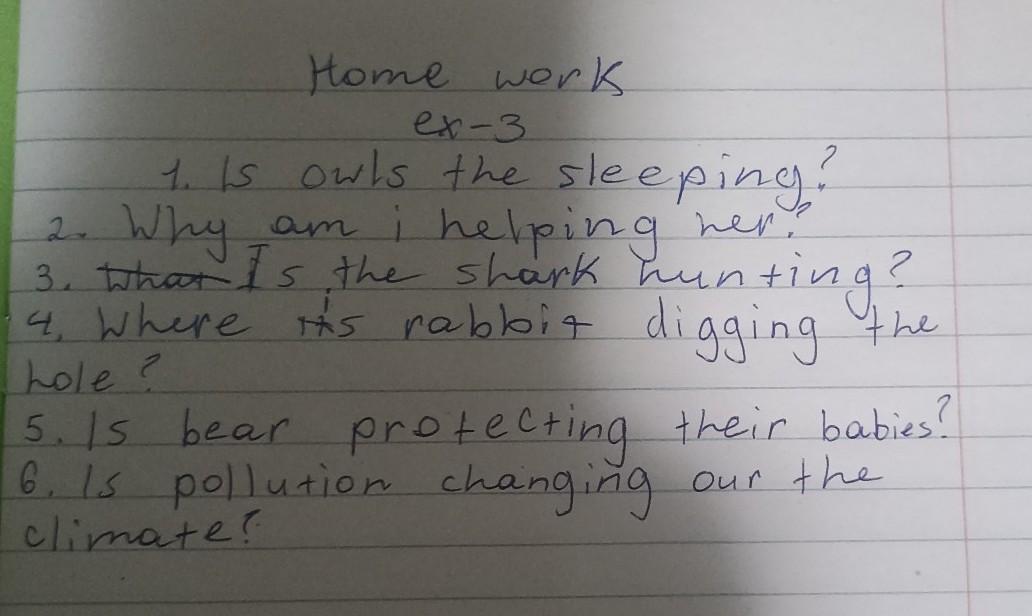 Home work
ex-3
1. Is owls the sleeping?
2. Why am i helping her?
3. What Is the shark hunting?
4. Where is rabbit digging the
hole?
5. Is bear protecting their babies?
6. Is pollution changing our the
climate?